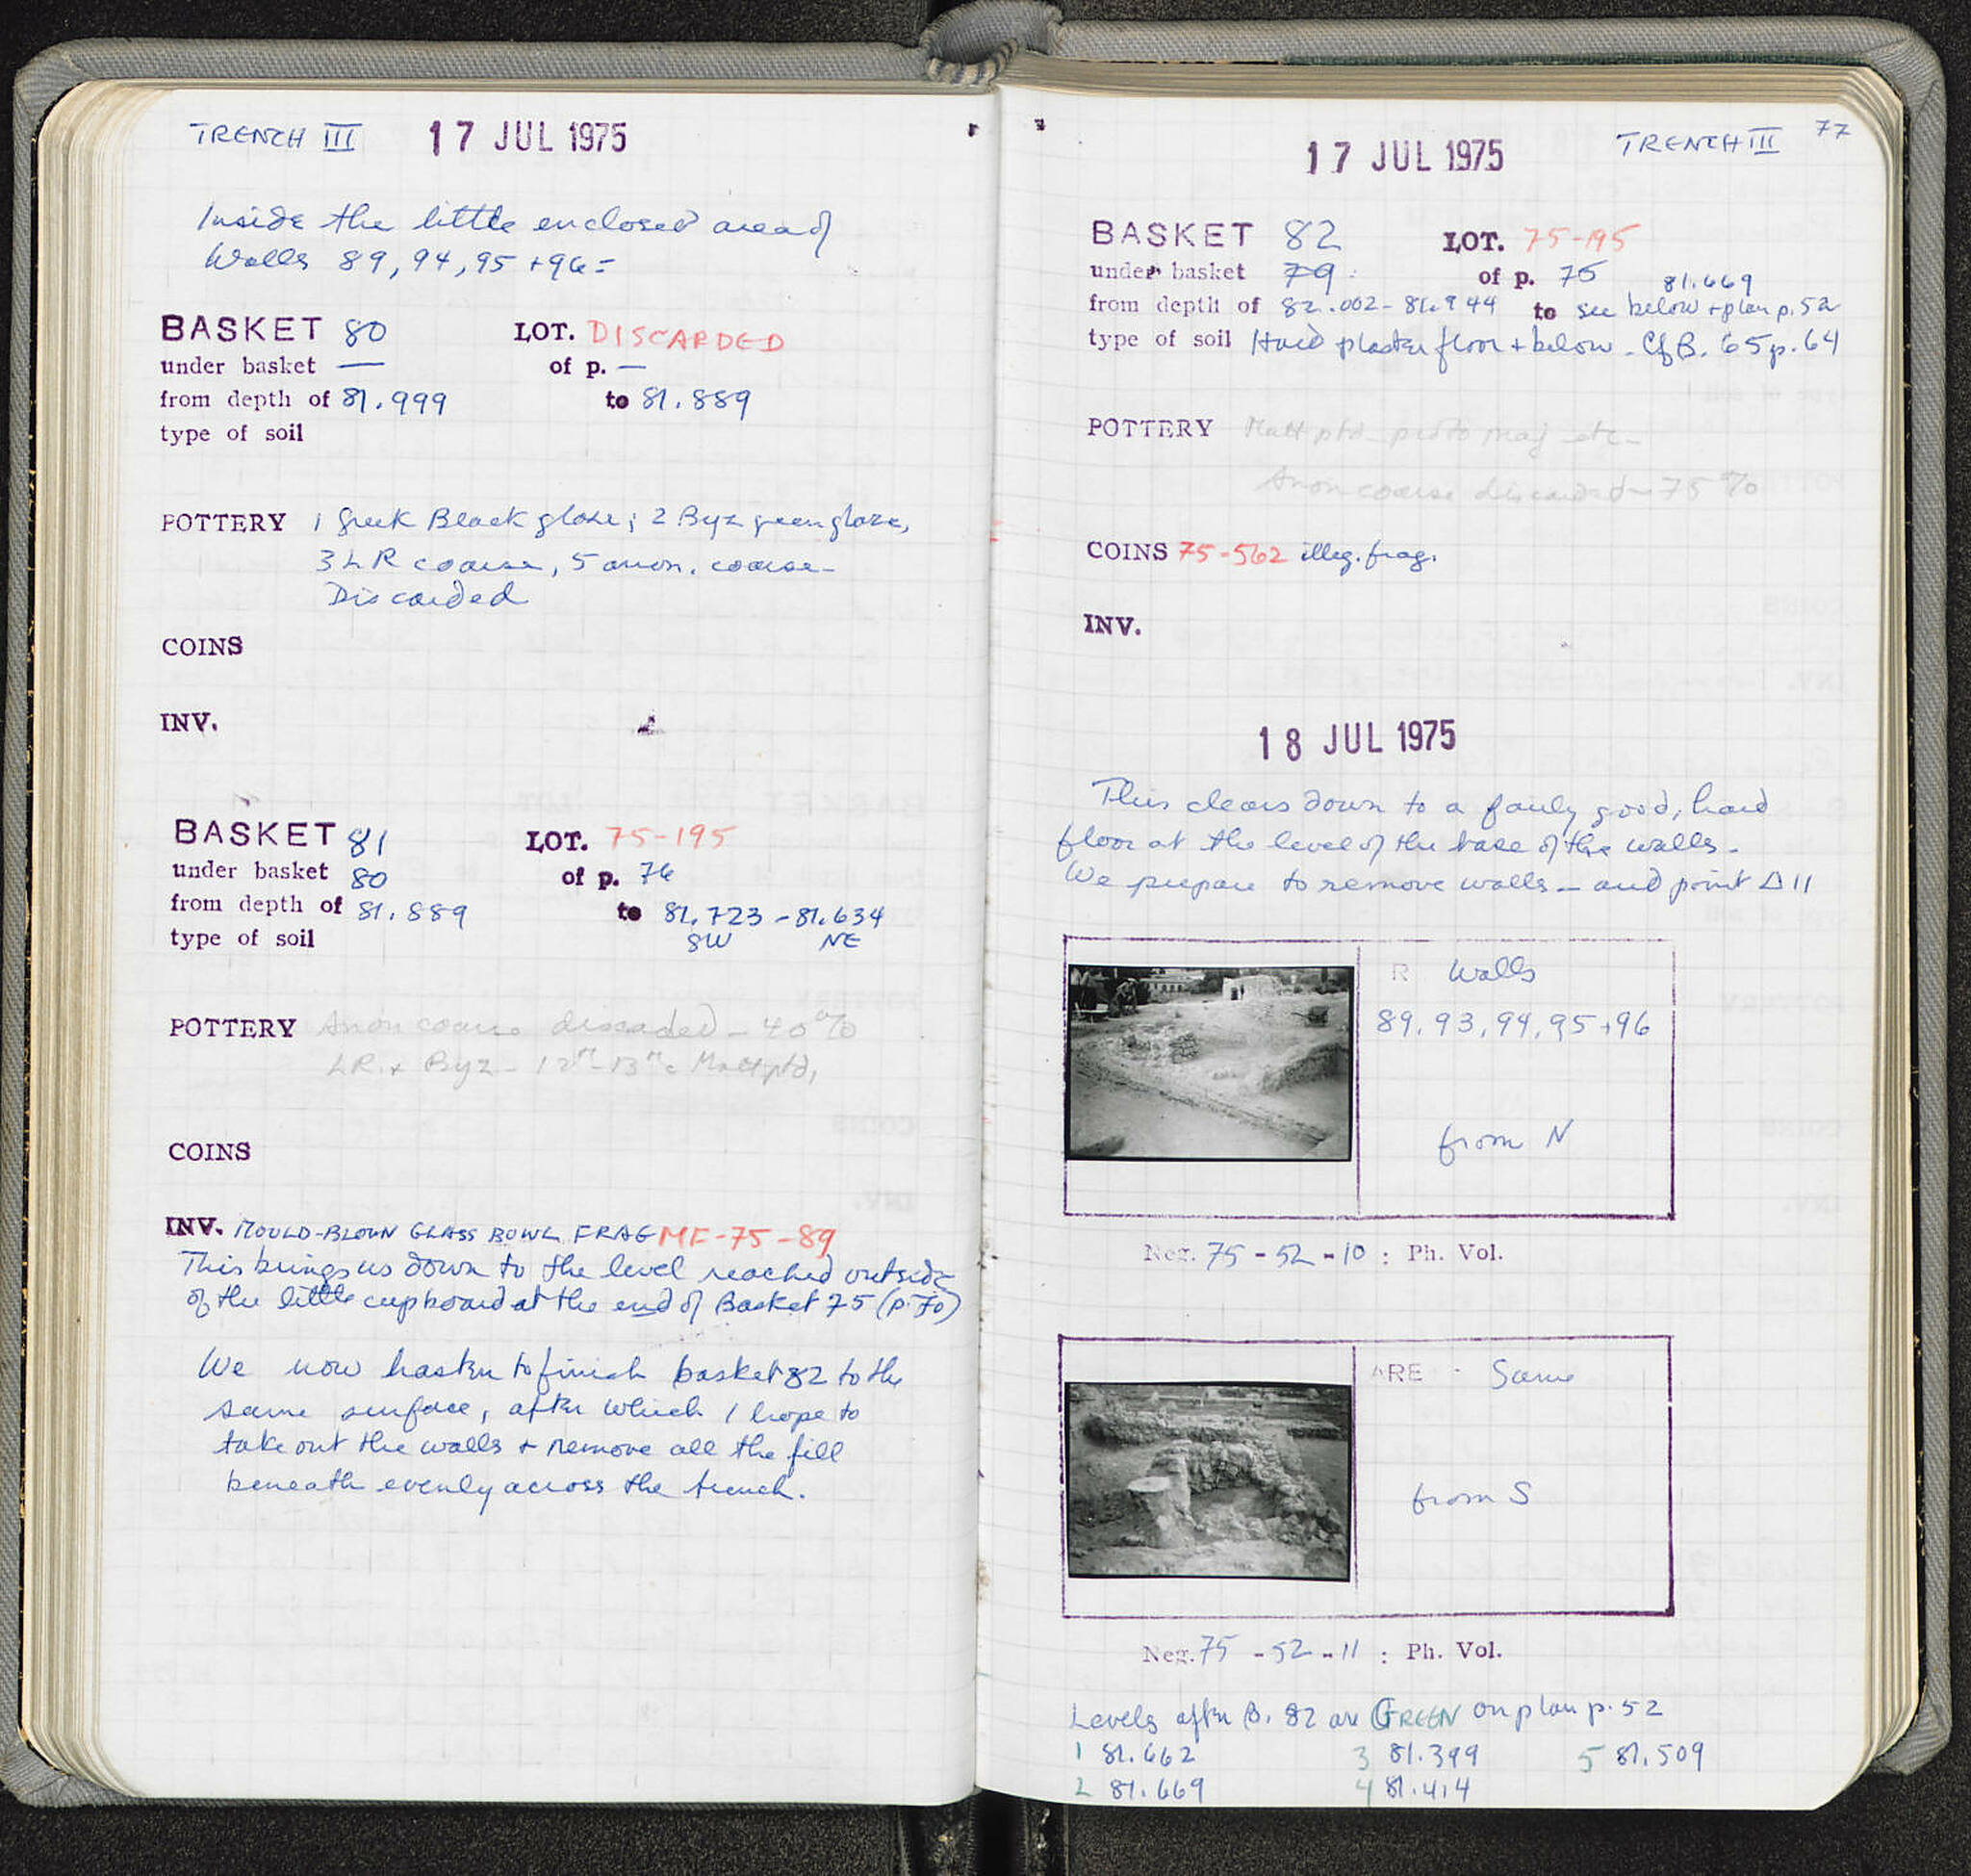 TRENCH III 17 JUL 1975
Inside the little enclosed area of
Walls 89, 94, 95 + 96 =
BASKET 80 LOT. DISCARDED
under basket — of p. —
from depth of 81.999 to 81.889
type of soil
POTTERY 1 Greek Black glaze; 2 Byz green glaze,
3 LR coarse, 5 anon. coarse -
Discarded
COINS
INV.
BASKET 81 LOT. 75-195
under basket 80 of p. 76
from depth of 81.889 to 81.723 - 81.634
type of soil SW NE
POTTERY Anon coarse discarded - 40%
LR + Byz - 12th - 13th c Matt ptd,
COINS
INV. MOULD-BLOWN GLASS BOWL FRAG MF-75-89
This brings us down to the level reached outside
of the little cupboard at the end of Basket 75 (p. 70)
We now hasten to finish basket 82 to the
same surface, after which I hope to
take out the walls + remove all the fill
beneath evenly across the trench.
17 JUL 1975 TRENCH III 77
BASKET 82 LOT. 75-195
under basket 79 of p. 75 81.669
from depth of 82.002 - 81.944 to see below + plan p. 52
type of soil Hard plaster floor + below. Cf B. 65 p. 64
POTTERY Matt ptd proto maj etc -
Anon coarse discarded - 75%
COINS 75-562 illeg. frag.
INV.
18 JUL 1975
This clears down to a fairly good, hard
floor at the level of the base of the walls -
We prepare to remove walls - and point Δ 11
R Walls
89, 93, 94, 95 + 96
from N
Neg. 75 - 52 - 10 : Ph. Vol.
ARE Same
from S
Neg. 75 - 52 - 11 : Ph. Vol.
Levels after B. 82 are GREEN on plan p. 52
1 81.662 3 81.399 5 81.509
2 81.669 4 81.414